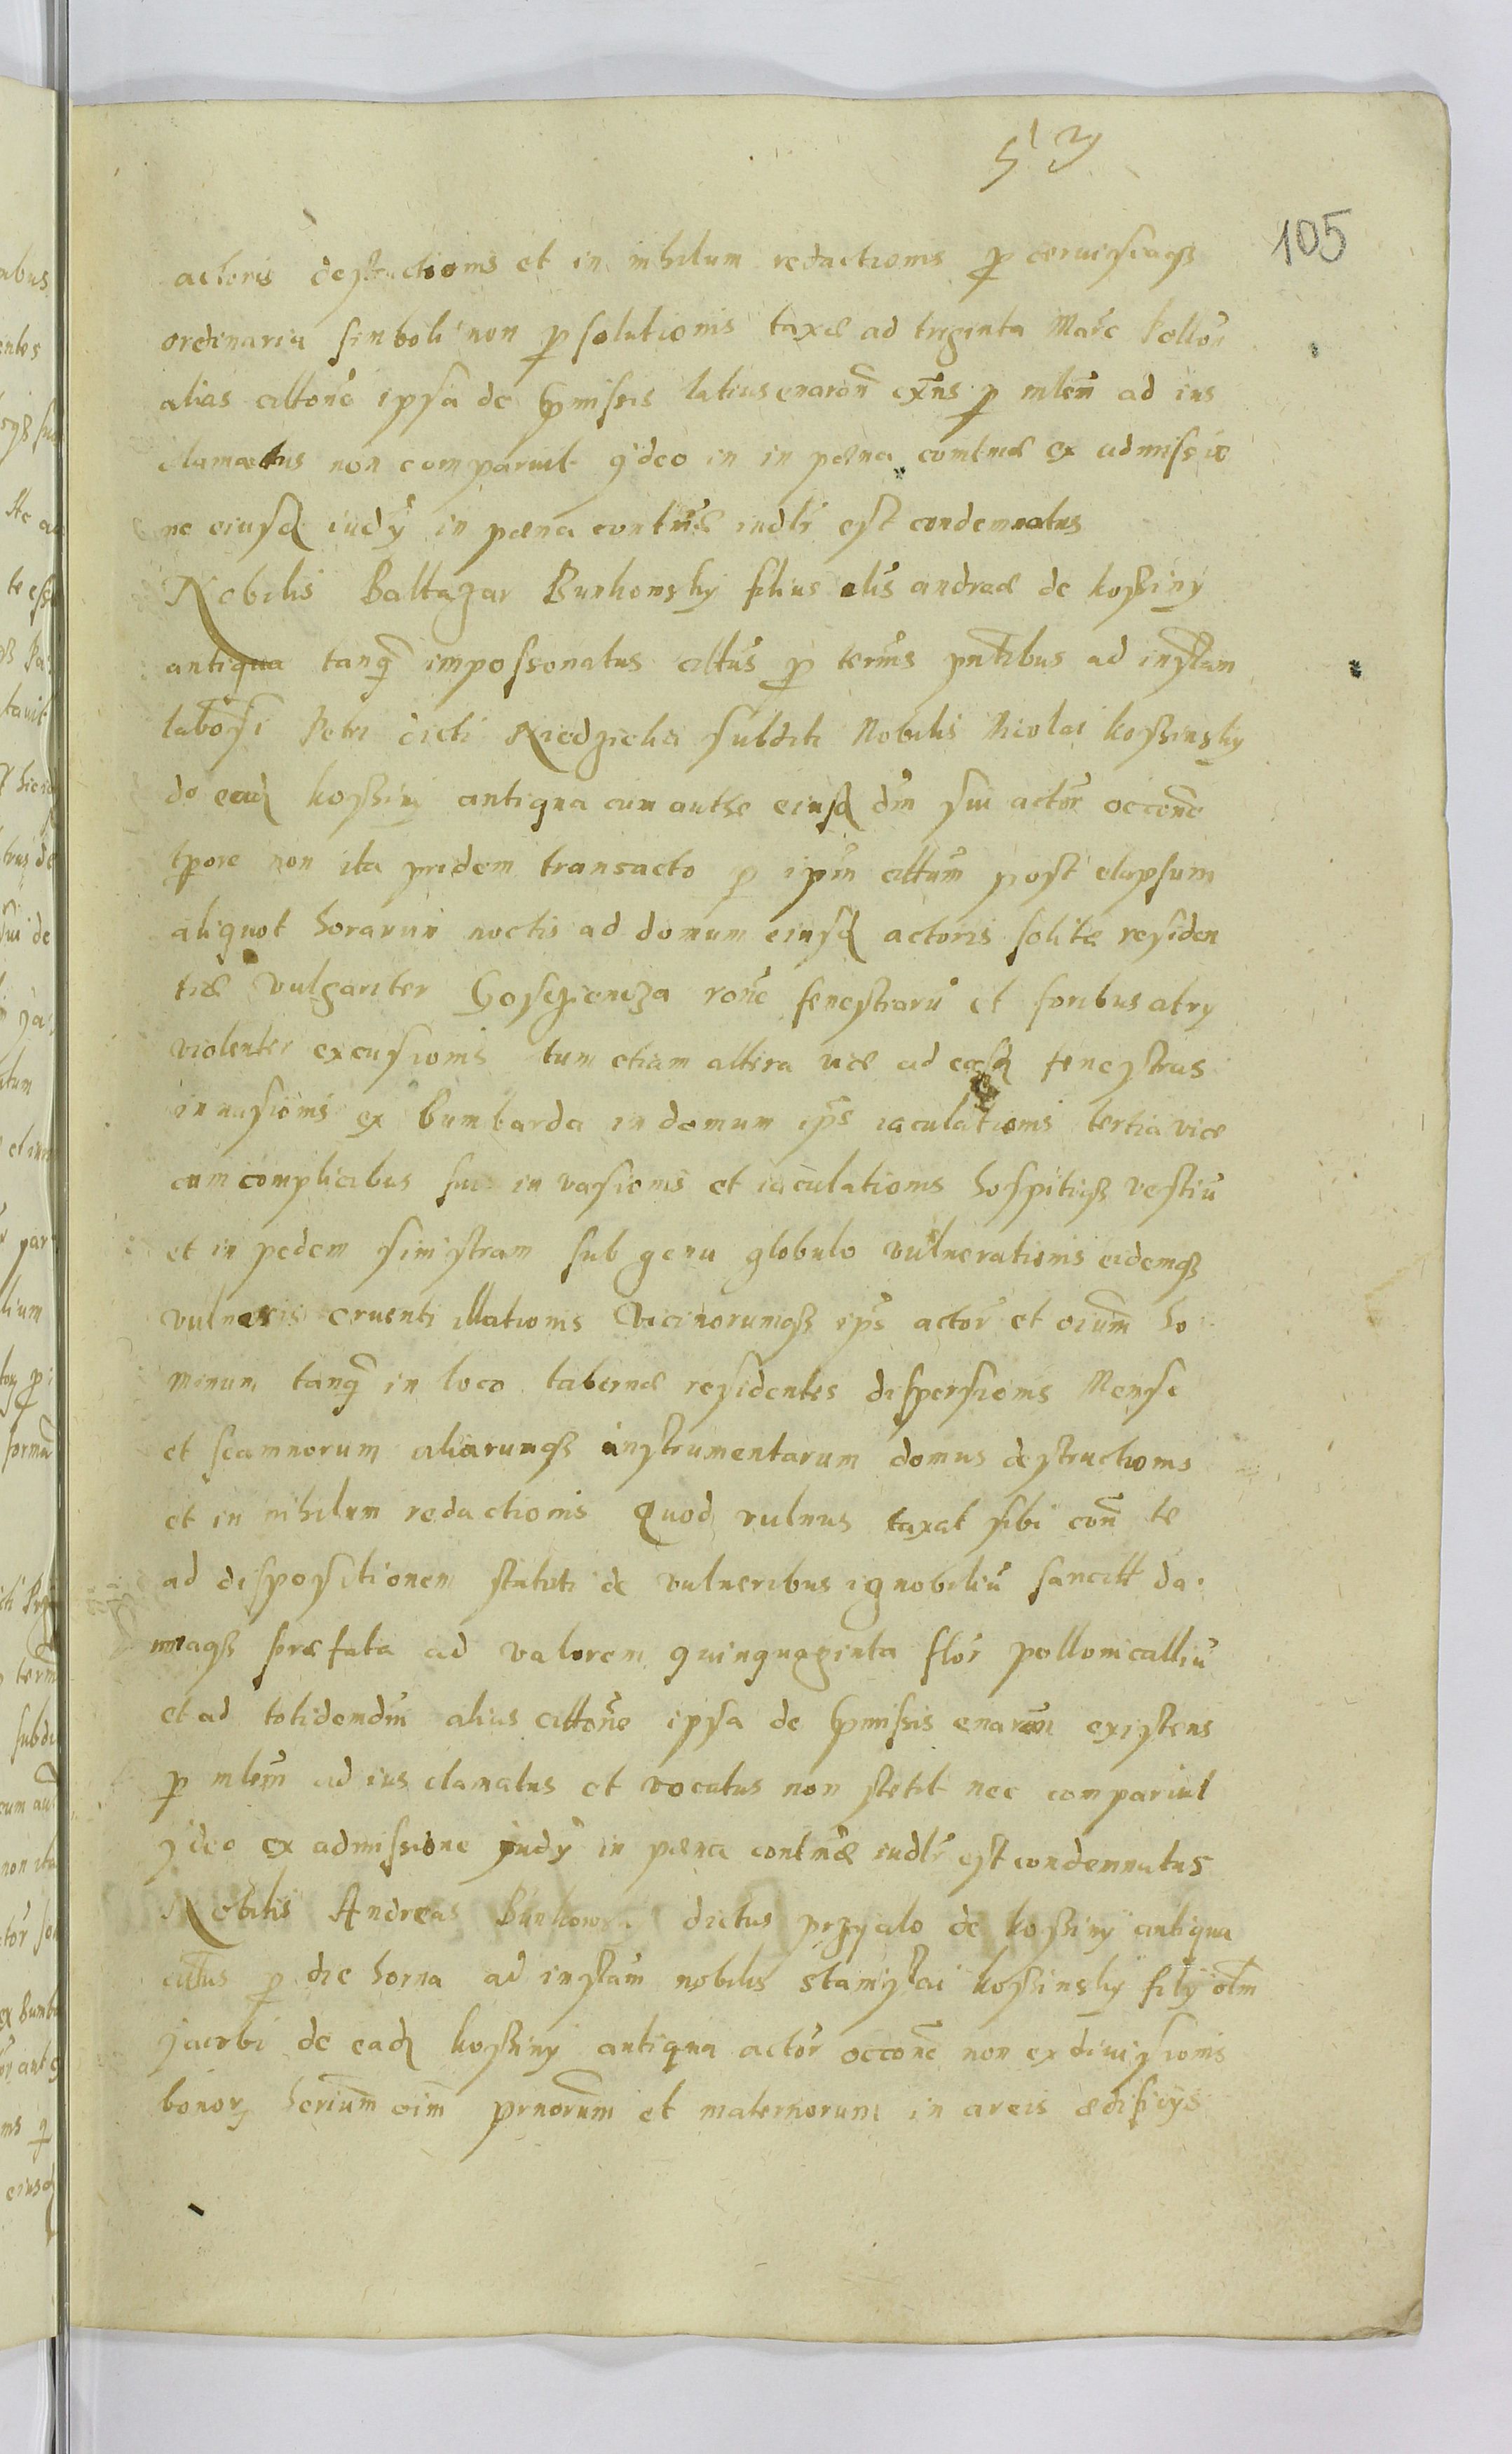 53
105
actoris destructionis et in nihilum redactionis p cervisiaqз
ordinaria simboli non p solutionis taxæ ad triginta Marc Pollon
alias cittone ipsa de pmissis latius enaron exns p mlem ad ius
clamatus non comparuit ÿdeo in in pæna contmæ ex admissio
ne eiusd iudÿ in pæna contmæ iudlr est condemnatus
Nobilis Baltazar Bunkowsky filius olis andreæ de kossiny
antiqua tanq impossonatus cittus p termis pntibus ad instam
labosi Petri dicti Niedzielia subditi Nobilis Nicolai kossinsky
de ead kossiny antiqua cum authe eiusd dni sui actor occone
tpore non ita pridem transacto p ipm cittum post elapsum
aliquot horarum noctis ad domum eiusd actoris solitæ residen
tiæ vulgariter Gosczieneza rone fenestraru et foribus atry
violenter excusionis tum etiam altera vice ad easd fenestras
invasionis ex bumbarda in domum ips iaculationis tertia vice
cum complicibus suis invasionis et iaculationis hospitiqз vestiu
et in pedem sinistram sub genu globulo vulnerationis eidemqз
vulneris cruenti illationis Vicinorumqз ips actor et oium ho
minum tanq in loco tabernæ residentes dispersionis Mensæ
et scamnorum aliarumqз instrumentarum domus destructionis
et in nihilum reductionis Quod vulnus taxat sibi con te
ad dispositionem statuti de vulneribus ignobiliu sancitt da
mnaqз præfata ad valorem quinquaginta flor pollonicalliu
et ad totidemdm alias cittone ipsa de pmissis enaron existens
p mlem ad ius clamatus et vocatus non stetit nec comparuit
ÿdeo ex admissione judÿ in pæna contmæ iudlr est condemnatus
Nobilis Andreas Bunkowsky dictus przyalo de kossiny antiqua
cittus p die horna ad instam nobilis stanislai kossinsky filÿ olm
Jacobi de ead kossiny antiqua actor occone non ex divisionis
bonor herium oim prnorum et maternorum in areis ædificÿs